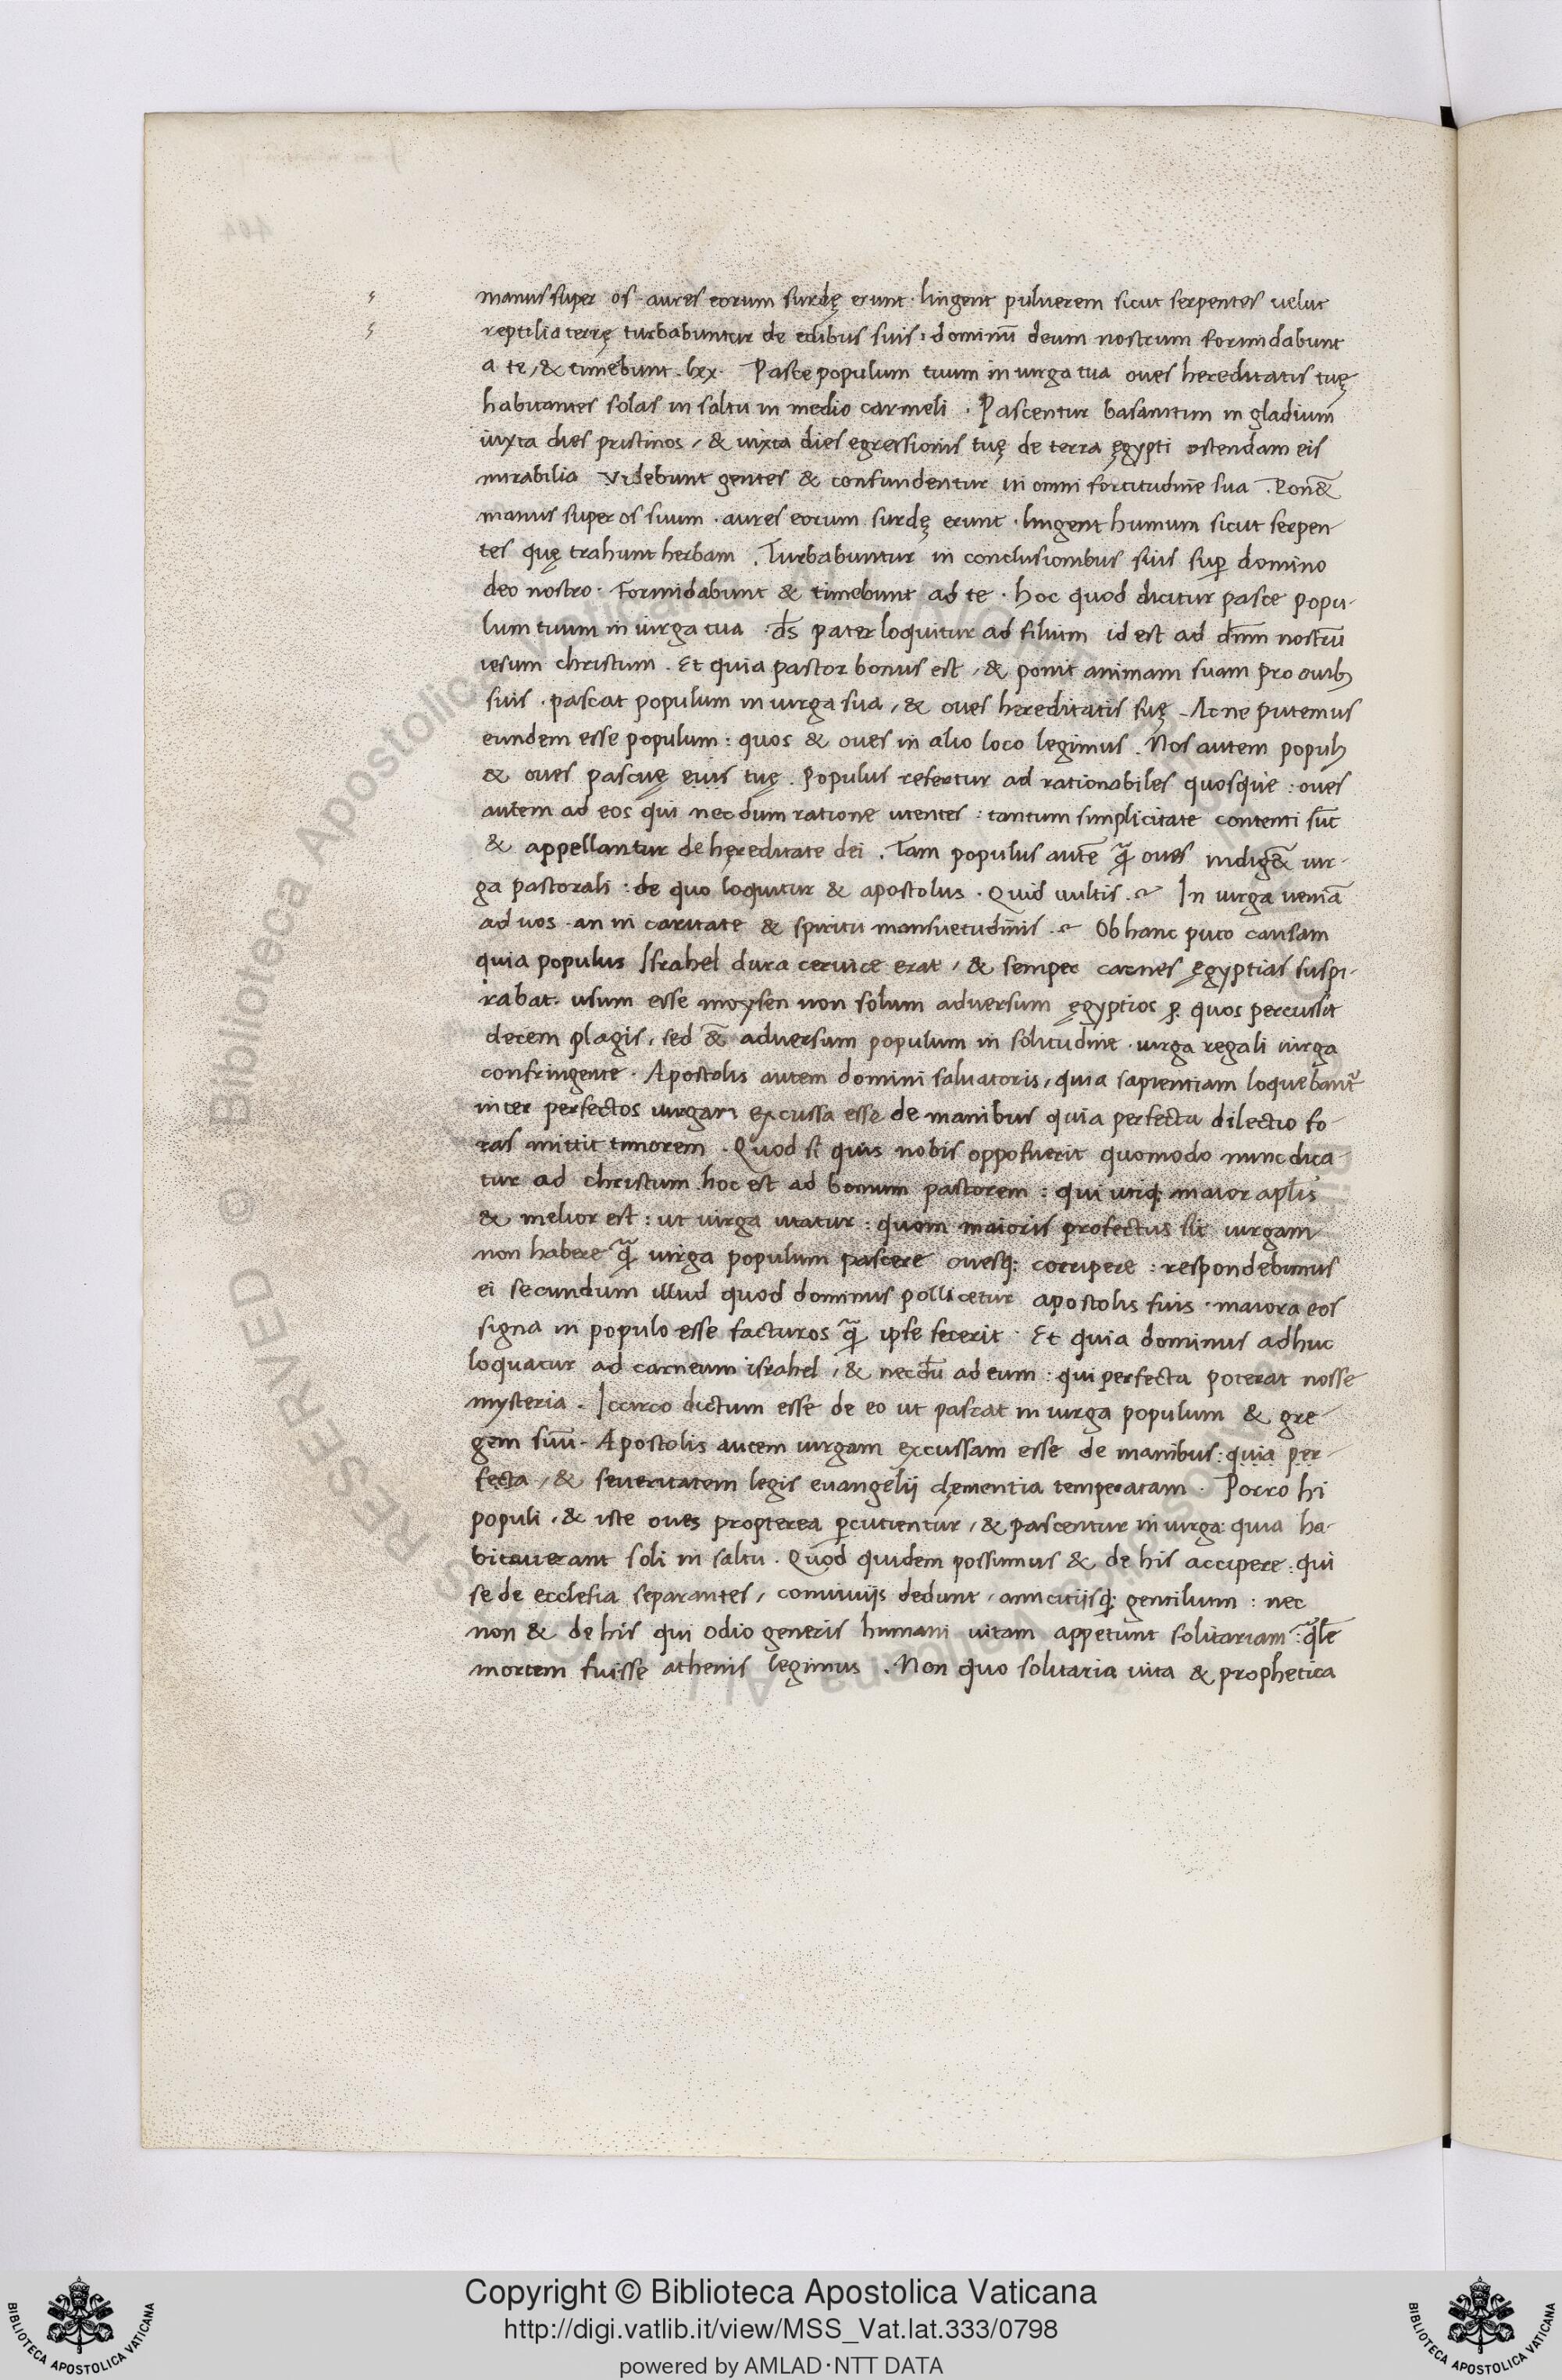 manus super os · aures eorum surdę erunt · lingent pulverem sicut serpentes uelut
reptilia terrę turbabuntur de edibus suis : dominū deum nostrum formidabunt
a te, & timebunt. lxx. Pasce populum tuum in uirga tua oues hereditatis tuę
habitantes solas in saltu in medio carmeli . Pascentur basanitim in gladium
iuxta dies pristinos, & iuxta dies egressionis tuę de terra ęgypti ostendam eis
mirabilia Videbunt gentes & confundentur in omni fortitudine sua . Pon&̄
manus super os suum . aures eorum surdę erunt . lingent humum sicut serpen-
tes quę trahunt herbam . Turbabuntur in conclusionibus suis sup̄ domino
deo nostro . Formidabunt & timebunt ad te . hoc quod dicitur pasce popu-
lum tuum in uirga tua . ds̄ pater loquitur ad filium id est ad dn̄m nostrū
iesum christum . Et quia pastor bonus est, & ponit animam suam pro ouibꝫ
suis . pascat populum in uirga sua, & oues hereditatis suę . Ac ne putemus
eundem esse populum : quos & oues in alio loco legimus . Nos autem populꝫ
& oues pascuę eius tuę . Populus refertur ad rationabiles quosque : oues
autem ad eos qui necdum ratione utentes : tantum simplicitate contenti sūt
& appellantur de hęreditate dei . Tam populus autē q̄ oues indig&̄ uir-
ga pastorali : de quo loquitur & apostolus . Quid uultis .~ In uirga ueniā
ad uos . an in caritate & spiritu mansuetudinis .~ Ob hanc puto causam
quia populus Israhel dura ceruice erat, & semper carnes ęgyptias suspi-
rabat . usum esse moysen non solum aduersum ęgyptios ꝑ quos percussit
decem plagis, sed &̄ aduersum populum in solitudine . uirga regali uirga
confringente . Apostolis autem domini saluatoris, quia sapientiam loquebant᷑
inter perfectos uirgam excussa esse de manibus quia perfecta dilectio fo-
ras mittit timorem . Quod si quis nobis opposuerit quomodo nunc dica-
tur ad christum hoc est ad bonum pastorem : qui utiqꝫ maior apl̄is
& melior est : ut uirga utatur : quom maioris profectus sit uirgam
non habere q̄ uirga populum pascere ouesqꝫ corripere : respondebimus
ei secundum illud quod dominus pollicetur apostolis suis . maiora eos
signa in populo esse facturos q̄ ipse fecerit . Et quia dominus adhuc
loquatur ad carneum israhel, & necdū ad eum : qui perfecta poterat nosse
mysteria . Iccirco dictum esse de eo ut pascat in uirga populum & gre-
gem suū . Apostolis autem uirgam excussam esse de manibus : quia per-
fecta, & seueritatem legis euangelij clęmentia temperatam . Porro hi
populi, & iste oues propterea ꝑcutientur, & pascentur in uirga : quia ha-
bitauerant soli in saltu . Quod quidem possumus & de his accipere : qui
se de ecclesia separantes, conuiuijs dedunt, amicitijsqꝫ gentilium : nec
non & de his qui odio generis humani uitam appetunt solitariam : qlē
mortem fuisse athenis legimus . Non quo solitaria uita & prophetica
Copyright © Biblioteca Apostolica Vaticana
http://digi.vatlib.it/view/MSS_Vat.lat.333/0798
powered by AMLAD·NTT DATA
BIBLIOTECA APOSTOLICA VATICANA
BIBLIOTECA APOSTOLICA VATICANA